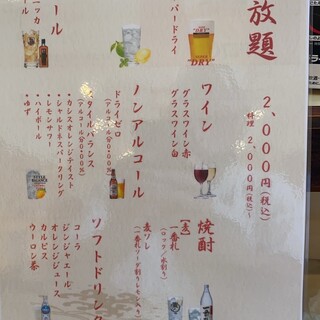 放題
2,000円(税込)
料理 2,000円(税込)〜
バードライ
SUPER
"DRY"
ール
ニッカ
ール
ワイン
グラスワイン赤
グラスワイン白
ノンアルコール
ドライゼロ
(アルコール分0.00%)
スタイルバランス
(アルコール分0.00%)
・カシスオレンジテイスト
・シャルドネスパークリング
・レモンサワー
・ハイボール
・ゆず
焼酎
【麦】
一番札
(ロック/水割り)
麦ソレ
(一番札ソーダ割りレモン入り)
ソフトドリンク
コーラ
ジンジャエール
オレンジジュース
カルピス
ウーロン茶